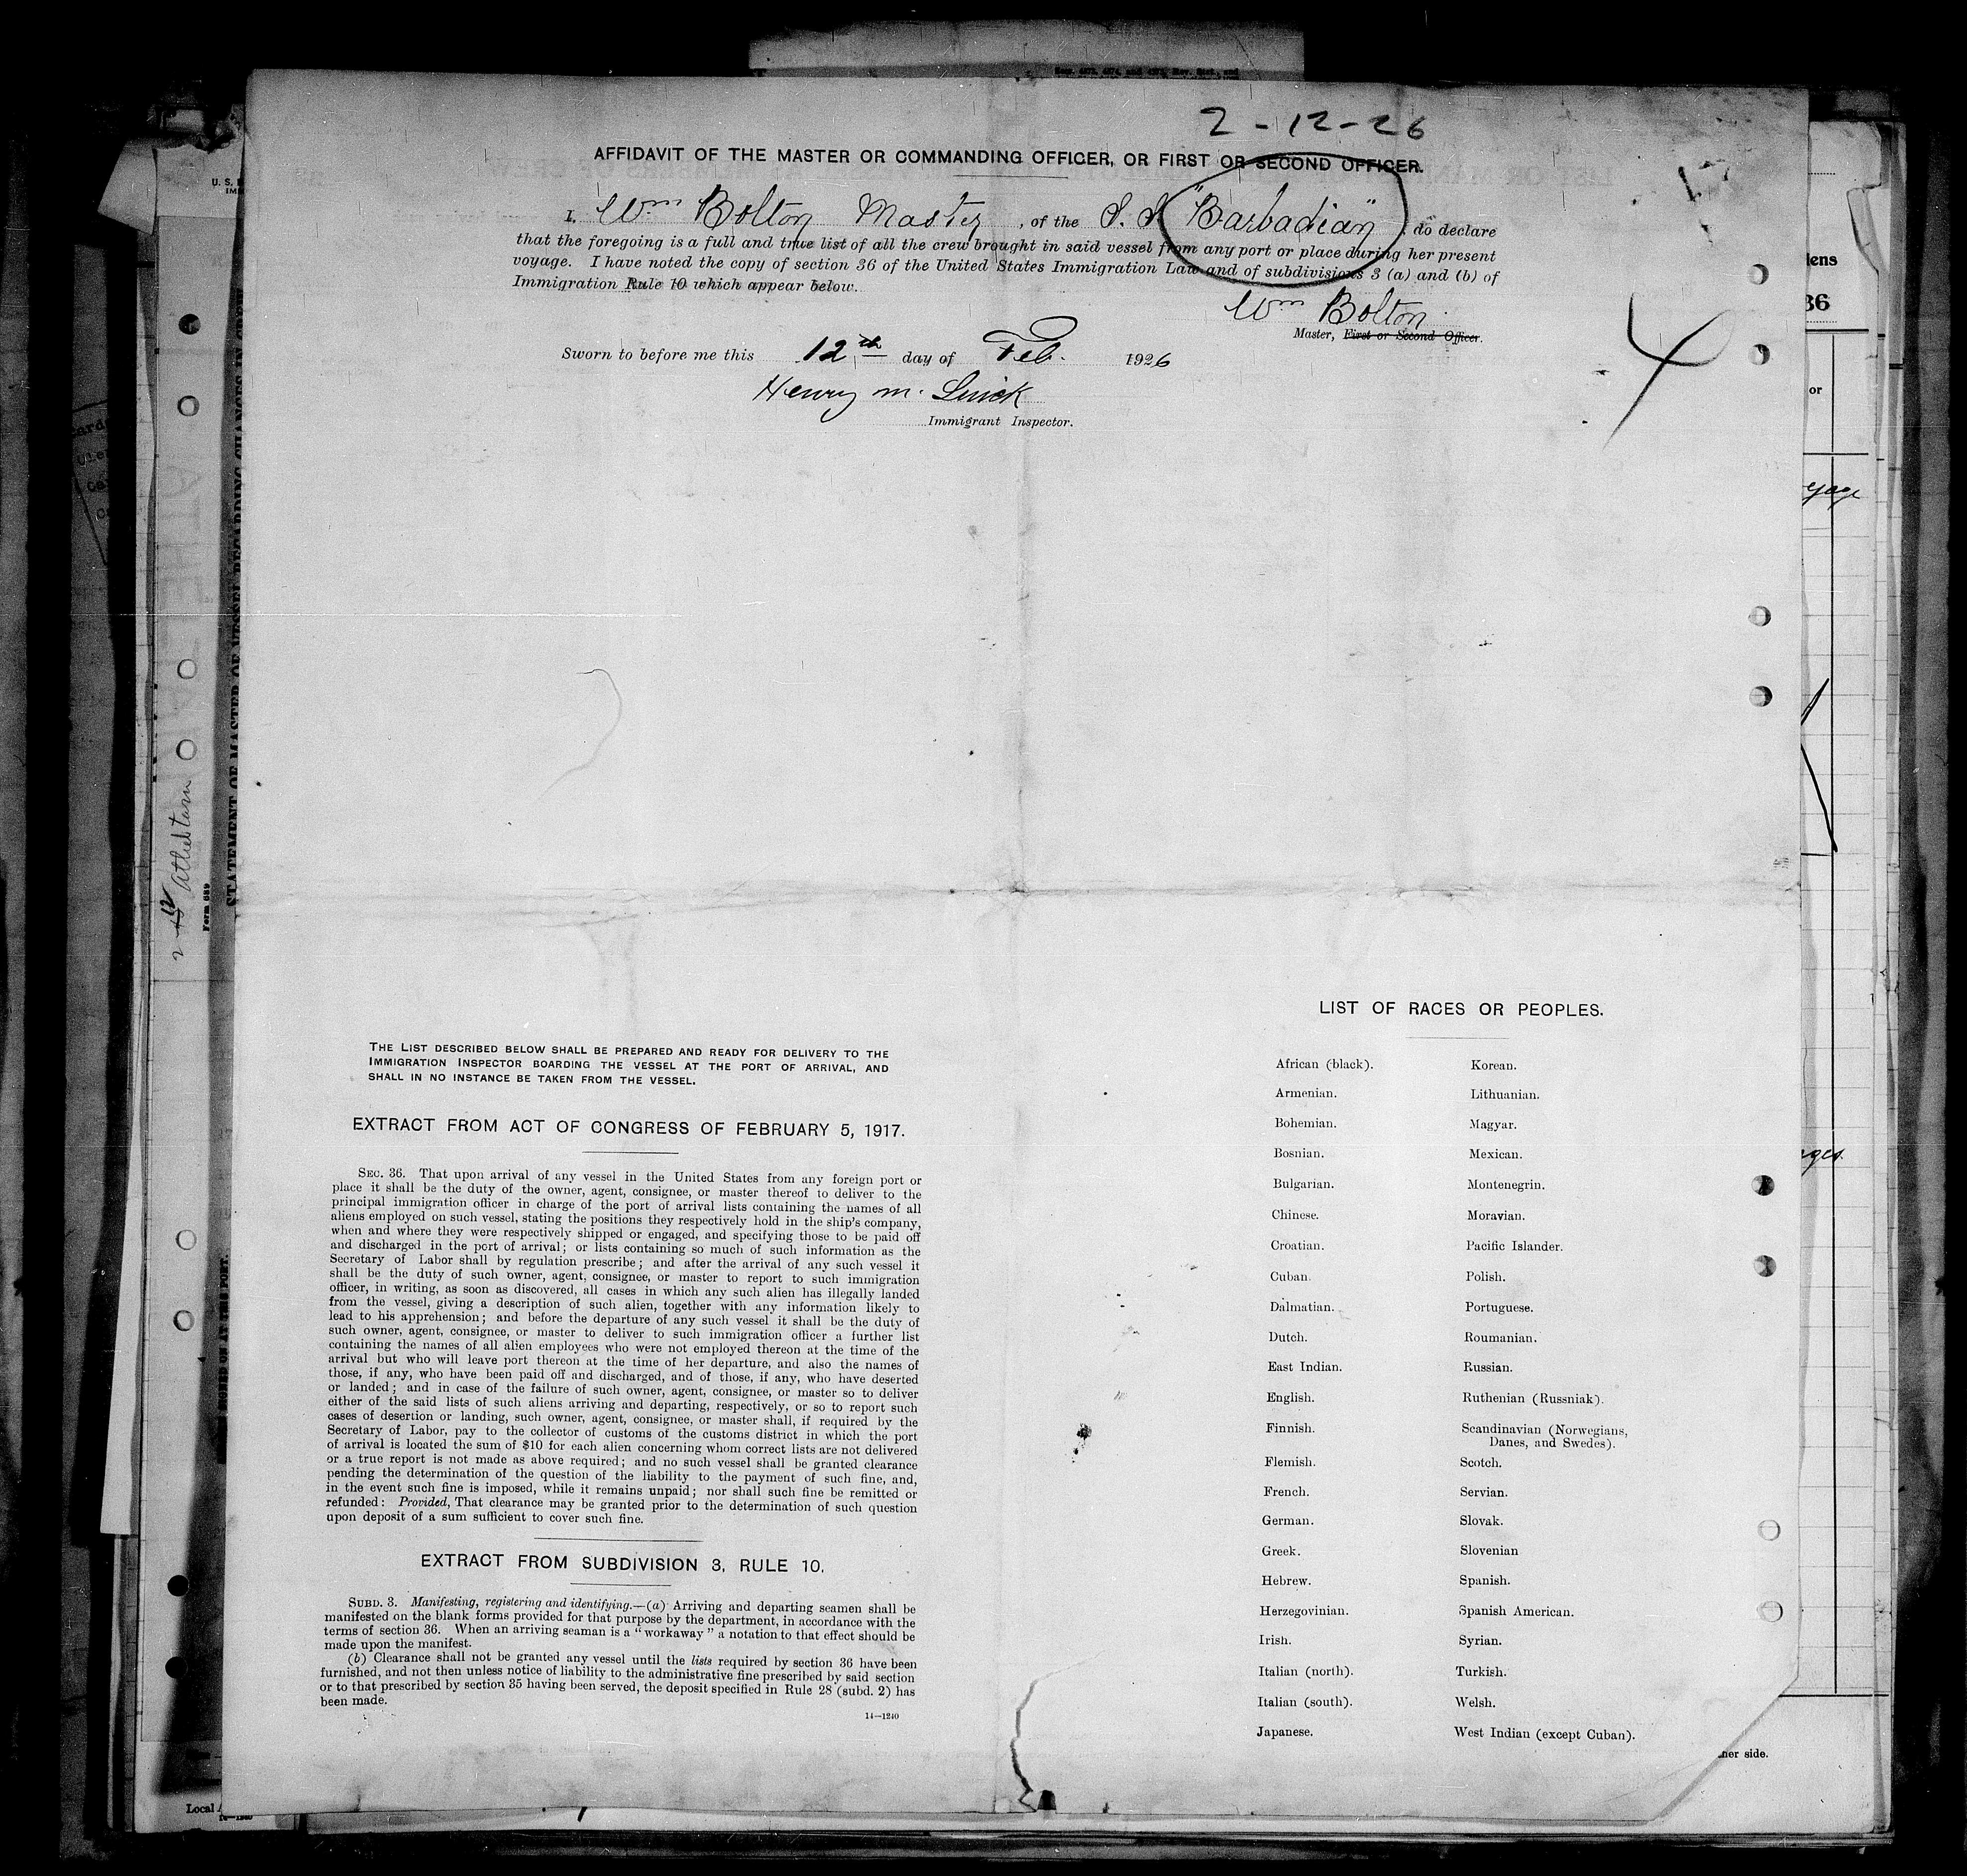 2-12-26
AFFIDAVIT OF THE MASTER OR COMMANDING OFFICER, OR FIRST OR SECOND OFFICER.
I, Wm Bolton Master, of the S.S "Barbadian", do declare
that the foregoing is a full and true list of all the crew brought in said vessel from any port or place during her present
voyage. I have noted the copy of section 36 of the United States Immigration Law and of subdivisions 3 (a) and (b) of
Immigration Rule 10 which appear below.
Wm Bolton
Master, First or Second Officer.
Sworn to before me this 12th day of Feb. 1926
Henry M.
Immigrant Inspector.
THE LIST DESCRIBED BELOW SHALL BE PREPARED AND READY FOR DELIVERY TO THE
IMMIGRATION INSPECTOR BOARDING THE VESSEL AT THE PORT OF ARRIVAL, AND
SHALL IN NO INSTANCE BE TAKEN FROM THE VESSEL.
EXTRACT FROM ACT OF CONGRESS OF FEBRUARY 5, 1917.
SEC. 36. That upon arrival of any vessel in the United States from any foreign port or
place it shall be the duty of the owner, agent, consignee, or master thereof to deliver to the
principal immigration officer in charge of the port of arrival lists containing the names of all
aliens employed on such vessel, stating the positions they respectively hold in the ship's company,
when and where they were respectively shipped or engaged, and specifying those to be paid off
and discharged in the port of arrival; or lists containing so much of such information as the
Secretary of Labor shall by regulation prescribe; and after the arrival of any such vessel it
shall be the duty of such owner, agent, consignee, or master to report to such immigration
officer, in writing, as soon as discovered, all cases in which any such alien has illegally landed
from the vessel, giving a description of such alien, together with any information likely to
lead to his apprehension; and before the departure of any such vessel it shall be the duty of
such owner, agent, consignee, or master to deliver to such immigration officer a further list
containing the names of all alien employees who were not employed thereon at the time of the
arrival but who will leave port thereon at the time of her departure, and also the names of
those, if any, who have been paid off and discharged, and of those, if any, who have deserted
or landed; and in case of the failure of such owner, agent, consignee, or master so to deliver
either of the said lists of such aliens arriving and departing, respectively, or so to report such
cases of desertion or landing, such owner, agent, consignee, or master shall, if required by the
Secretary of Labor, pay to the collector of customs of the customs district in which the port
of arrival is located the sum of $10 for each alien concerning whom correct lists are not delivered
or a true report is not made as above required; and no such vessel shall be granted clearance
pending the determination of the question of the liability to the payment of such fine, and,
in the event such fine is imposed, while it remains unpaid; nor shall such fine be remitted or
refunded: Provided, That clearance may be granted prior to the determination of such question
upon deposit of a sum sufficient to cover such fine.
EXTRACT FROM SUBDIVISION 3, RULE 10.
SUBD. 3. Manifesting, registering and identifying.—(a) Arriving and departing seamen shall be
manifested on the blank forms provided for that purpose by the department, in accordance with the
terms of section 36. When an arriving seaman is a "workaway" a notation to that effect should be
made upon the manifest.
(b) Clearance shall not be granted any vessel until the lists required by section 36 have been
furnished, and not then unless notice of liability to the administrative fine prescribed by said section
or to that prescribed by section 35 having been served, the deposit specified in Rule 28 (subd. 2) has
been made.
14—1240
LIST OF RACES OR PEOPLES.
African (black). Korean.
Armenian. Lithuanian.
Bohemian. Magyar.
Bosnian. Mexican.
Bulgarian. Montenegrin.
Chinese. Moravian.
Croatian. Pacific Islander.
Cuban. Polish.
Dalmatian. Portuguese.
Dutch. Roumanian.
East Indian. Russian.
English. Ruthenian (Russniak).
Finnish. Scandinavian (Norwegians,
Danes, and Swedes).
Flemish. Scotch.
French. Servian.
German. Slovak.
Greek. Slovenian
Hebrew. Spanish.
Herzegovinian. Spanish American.
Irish. Syrian.
Italian (north). Turkish.
Italian (south). Welsh.
Japanese. West Indian (except Cuban).
Form 689
STATEMENT OF MASTER OF VESSEL REGARDING CHANGES IN CREW
her side.
Local